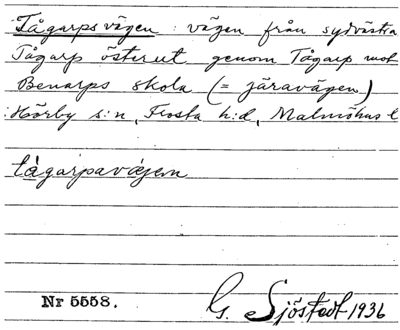 Tågarpsvägen : vägen från sydvästra
Tågarp österut genom Tågarp mot
Benarps skola (= järavägen)
Hörby s:n, Frosta h:d, Malmöhus l
tågarpaväjen
Nr 5558.
G. Sjöstedt 1936